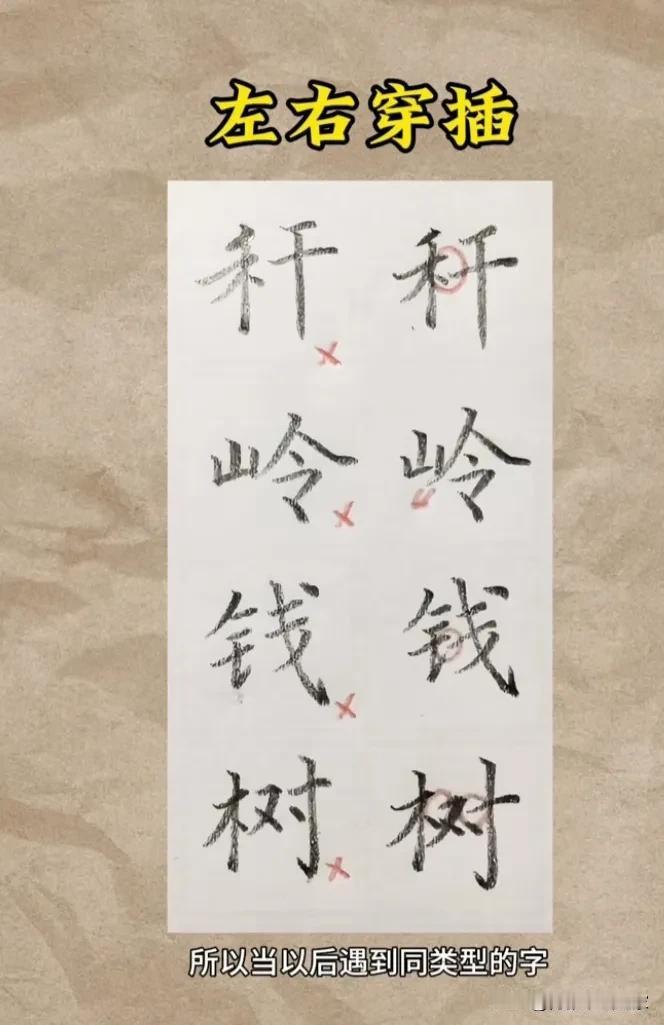 左右穿插
秆 秆
岭 岭
钱 钱
树 树
所以当以后遇到同类型的字